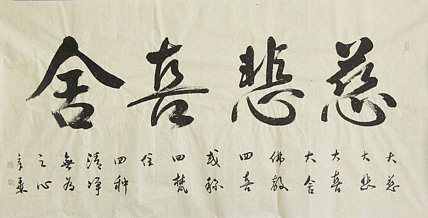 慈悲喜舍
大慈
大悲
大喜
大舍
佛教
四喜
或称
四梵
住
四种
清净
無为
之心